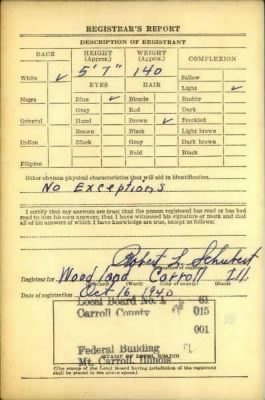 REGISTRAR'S REPORT
DESCRIPTION OF REGISTRANT
RACE HEIGHT (Approx.) WEIGHT (Approx.) COMPLEXION
White ✓ 5' 7" 140 Sallow
EYES HAIR Light ✓
Negro Blue ✓ Blonde Ruddy
Gray Red Dark
Oriental Hazel Brown ✓ Freckled
Brown Black Light brown
Indian Black Gray Dark brown
Bald Black
Filipino
Other obvious physical characteristics that will aid in identification
No Exceptions
I certify that my answers are true; that the person registered has read or has had
read to him his own answers; that I have witnessed his signature or mark and that
all of his answers of which I have knowledge are true, except as follows:
Robert L Schubert
Registrar for Woodland Carroll Ill
Date of registration Oct 16 1940
Local Board No. 61
Carroll County 015
001
Federal Building
Mt. Carroll, Illinois
(STAMP OF LOCAL BOARD)
(The stamp of the Local Board having jurisdiction of the registrant
shall be placed in the above space.)